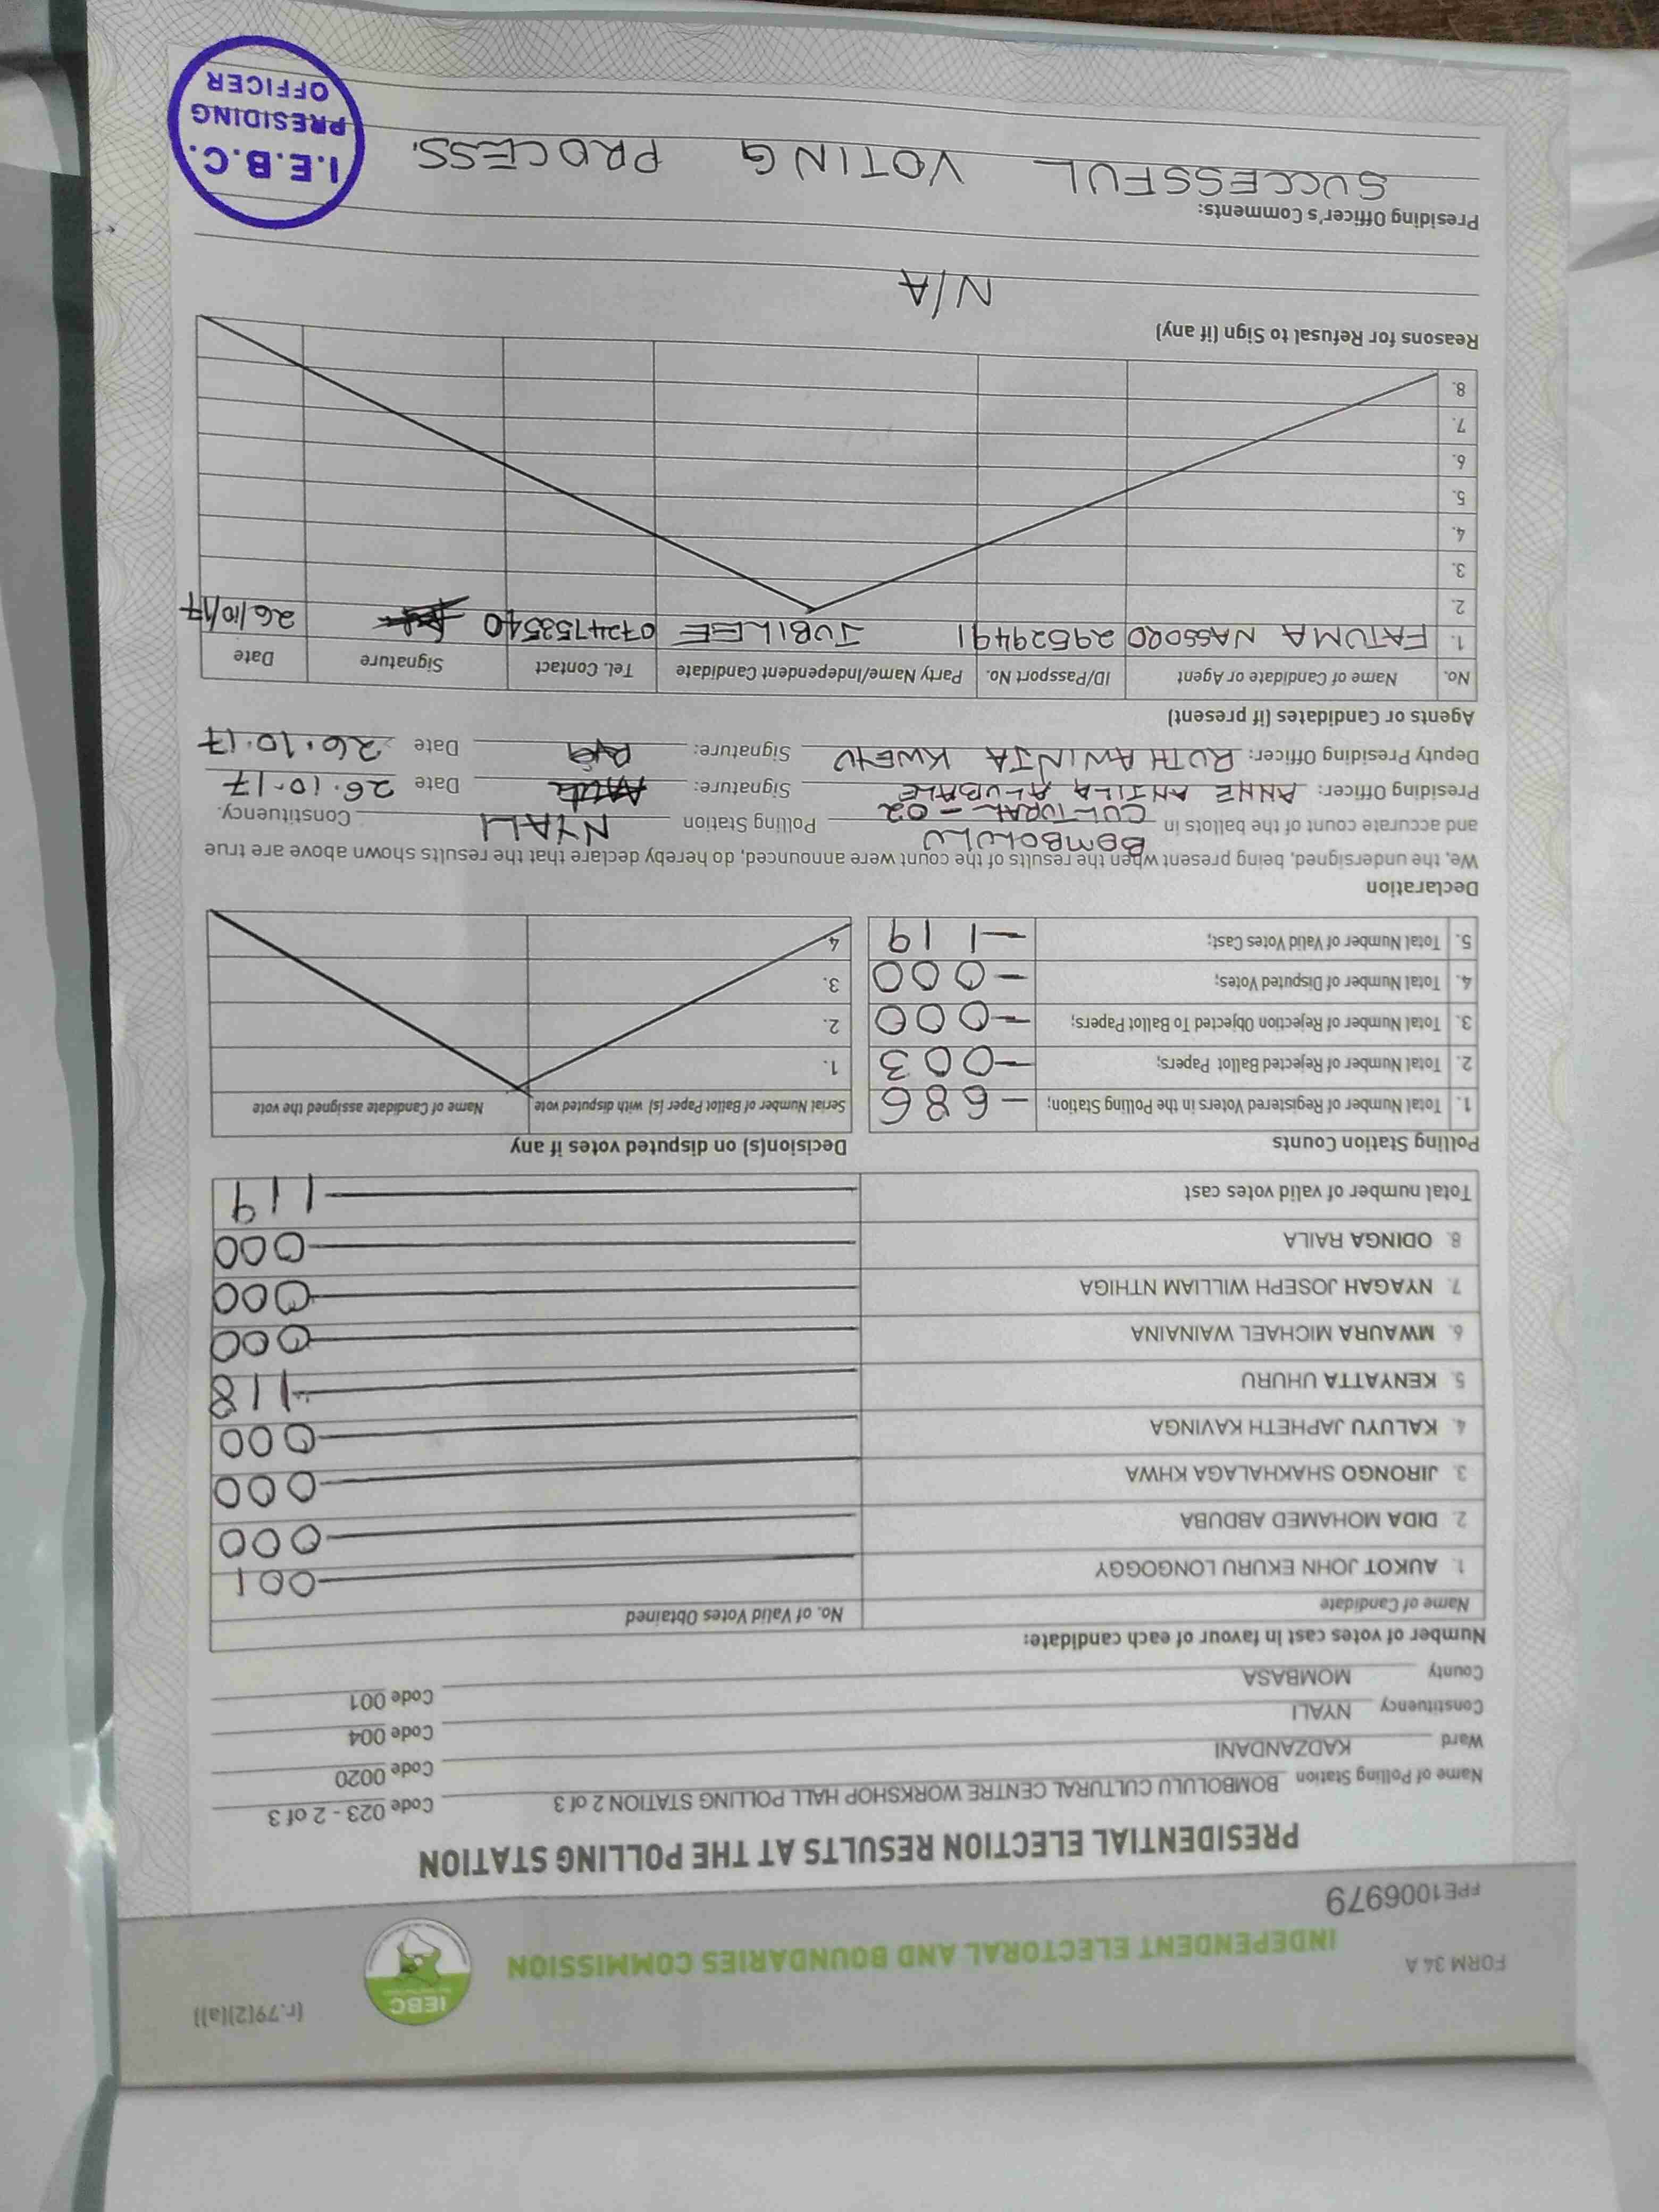 FORM 34 A
(r.79(2)(a))
INDEPENDENT ELECTORAL AND BOUNDARIES COMMISSION
IEBC
FPE1006979
PRESIDENTIAL ELECTION RESULTS AT THE POLLING STATION
Name of Polling Station BOMBOLULU CULTURAL CENTRE WORKSHOP HALL POLLING STATION 2 of 3 Code 023 - 2 of 3
Ward KADZANDANI Code 0020
Constituency NYALI Code 004
County MOMBASA Code 001
Number of votes cast in favour of each candidate:
Name of Candidate No. of Valid Votes Obtained
1. AUKOT JOHN EKURU LONGOGGY 001
2. DIDA MOHAMED ABDUBA 000
3. JIRONGO SHAKHALAGA KHWA 000
4. KALUYU JAPHETH KAVINGA 000
5. KENYATTA UHURU 118
6. MWAURA MICHAEL WAINAINA 000
7. NYAGAH JOSEPH WILLIAM NTHIGA 000
8. ODINGA RAILA 000
Total number of valid votes cast 119
Polling Station Counts
1. Total Number of Registered Voters in the Polling Station; - 686
2. Total Number of Rejected Ballot Papers; - 003
3. Total Number of Rejection Objected To Ballot Papers; - 000
4. Total Number of Disputed Votes; - 000
5. Total Number of Valid Votes Cast; - 119
Decision(s) on disputed votes if any
Serial Number of Ballot Paper (s) with disputed vote Name of Candidate assigned the vote
1.
2.
3.
4
Declaration
We, the undersigned, being present when the results of the count were announced, do hereby declare that the results shown above are true
and accurate count of the ballots in BOMBOLULU CULTURAL - 02 Polling Station NYALI Constituency.
Presiding Officer: ANNE ANJILA ALUBALE Signature: Date 26.10.17
Deputy Presiding Officer: RUTH AWINJA KWEYU Signature: Date 26.10.17
Agents or Candidates (if present)
No. Name of Candidate or Agent ID/Passport No. Party Name/Independent Candidate Tel. Contact Signature Date
1. FATUMA NASSORO 29529491 JUBILEE 0724753540 26/10/17
2.
3.
4.
5.
6.
7.
8.
Reasons for Refusal to Sign (if any)
N/A
Presiding Officer's Comments:
SUCCESSFUL VOTING PROCESS.
I.E.B.C.
PRESIDING
OFFICER